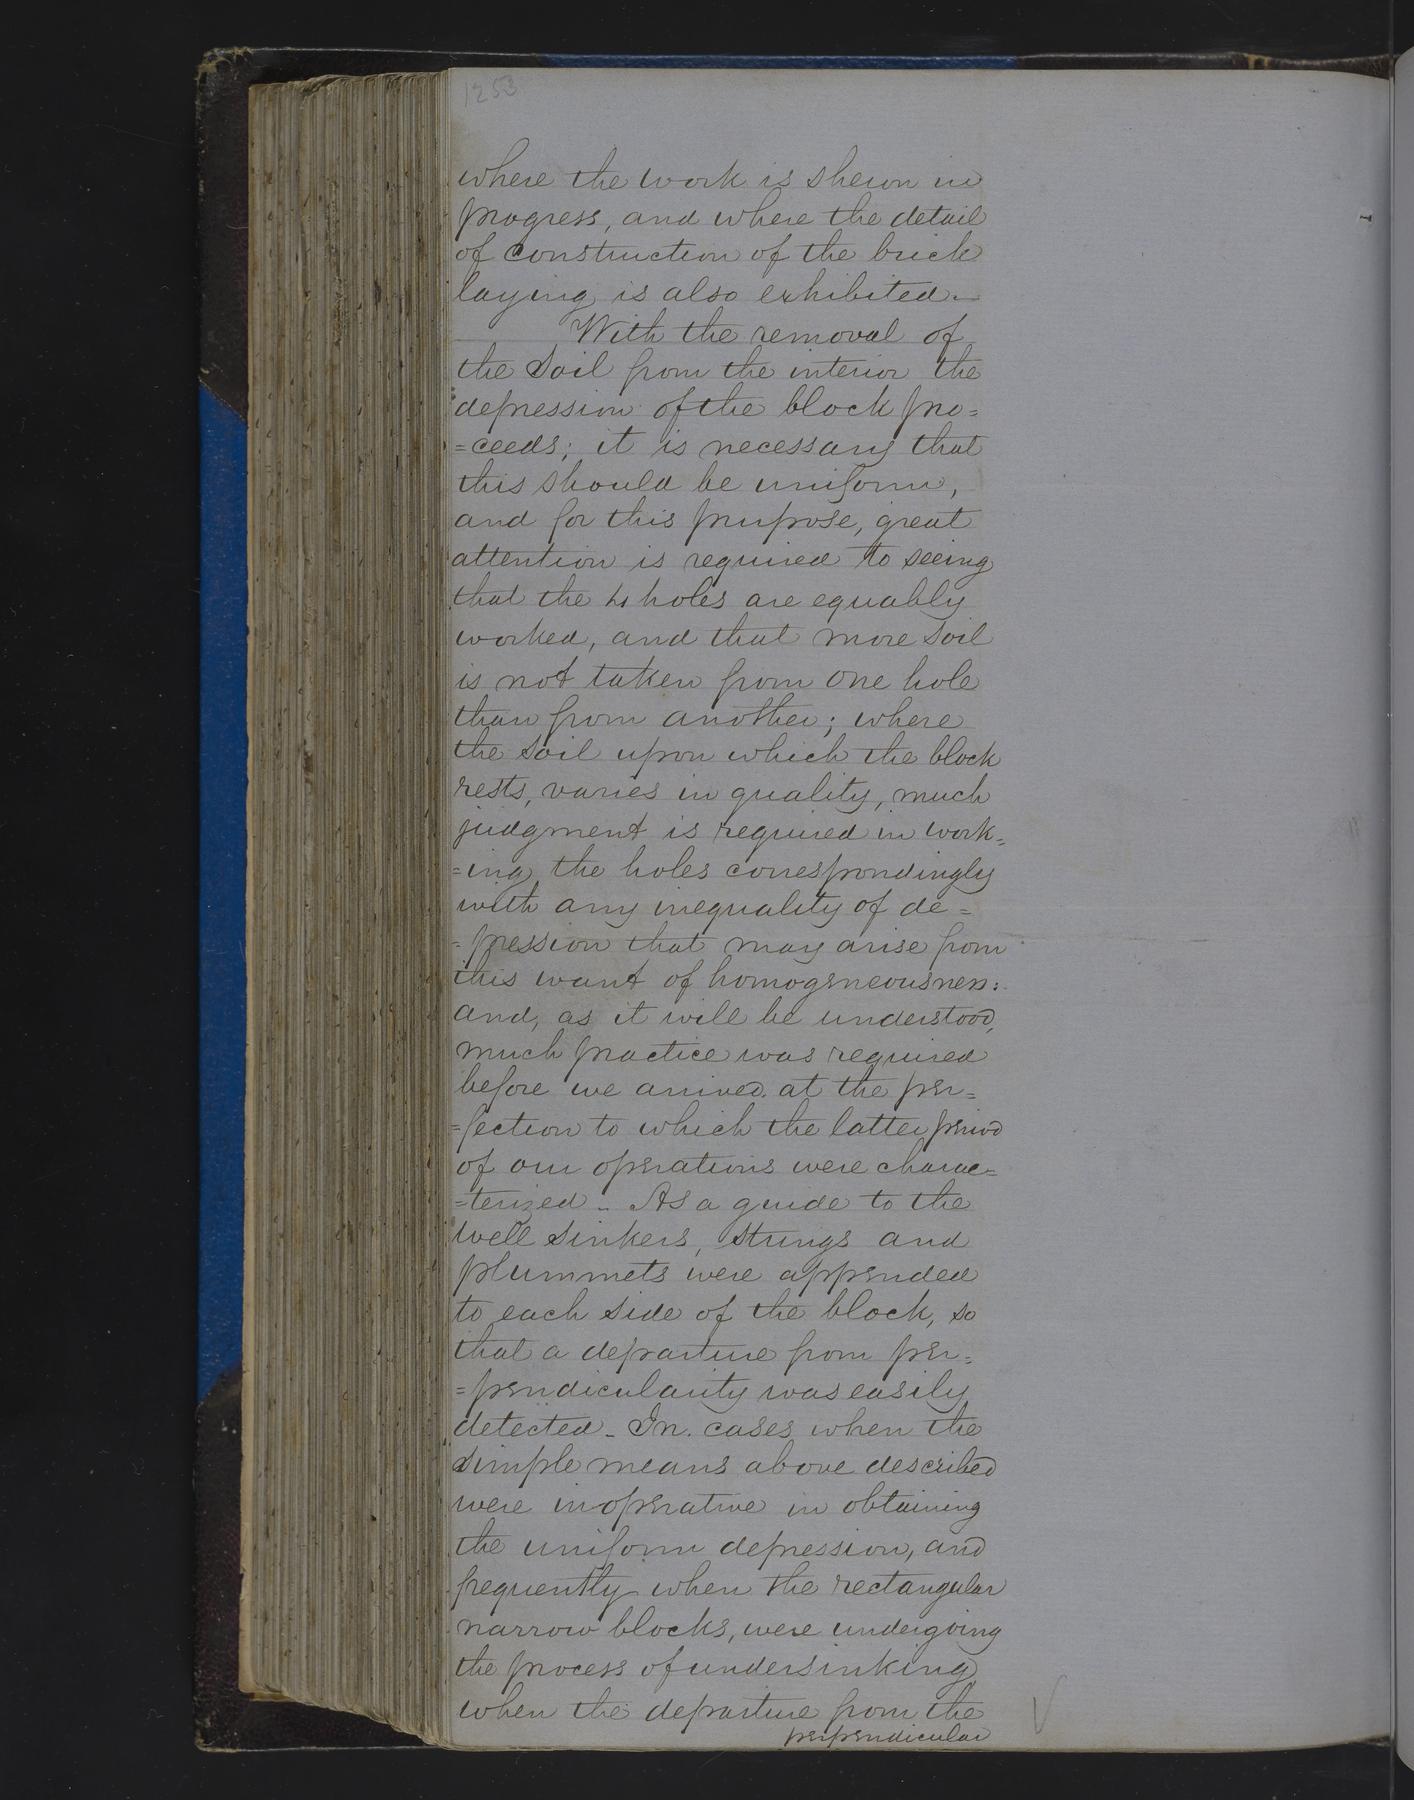 1253
where the work is shewn in
progress, and where the detail
of construction of the brick
laying is also exhibited.
With the removal of
the soil from the interior the
depression of the block pro=
=ceeds; it is necessary that
this should be uniform,
and for this purpose, great
attention is required to seeing
that the 4 holes are equably
worked, and that more soil
is not taken from one hole
than from another; where
the soil upon which the block
rests, varies in quality, much
judgment is required in work=
=ing the holes correspondingly
with any inequality of de=
=pression that may arise from
this want of homogeneousness:
and, as it will be understood,
much practice was required
before we arrived at the per=
=fection to which the latter period
of our operations were charac=
=terized - As a guide to the
well sinkers, strings and
plummets were appended
to each side of the block, so
that a departure from per=
=pendicularity was easily
detected - In cases when the
simple means above described
were inoperative in obtaining
the uniform depression, and
frequently when the rectangular
narrow blocks, were undergoing
the process of undersinking
when the departure from the
perpendicular